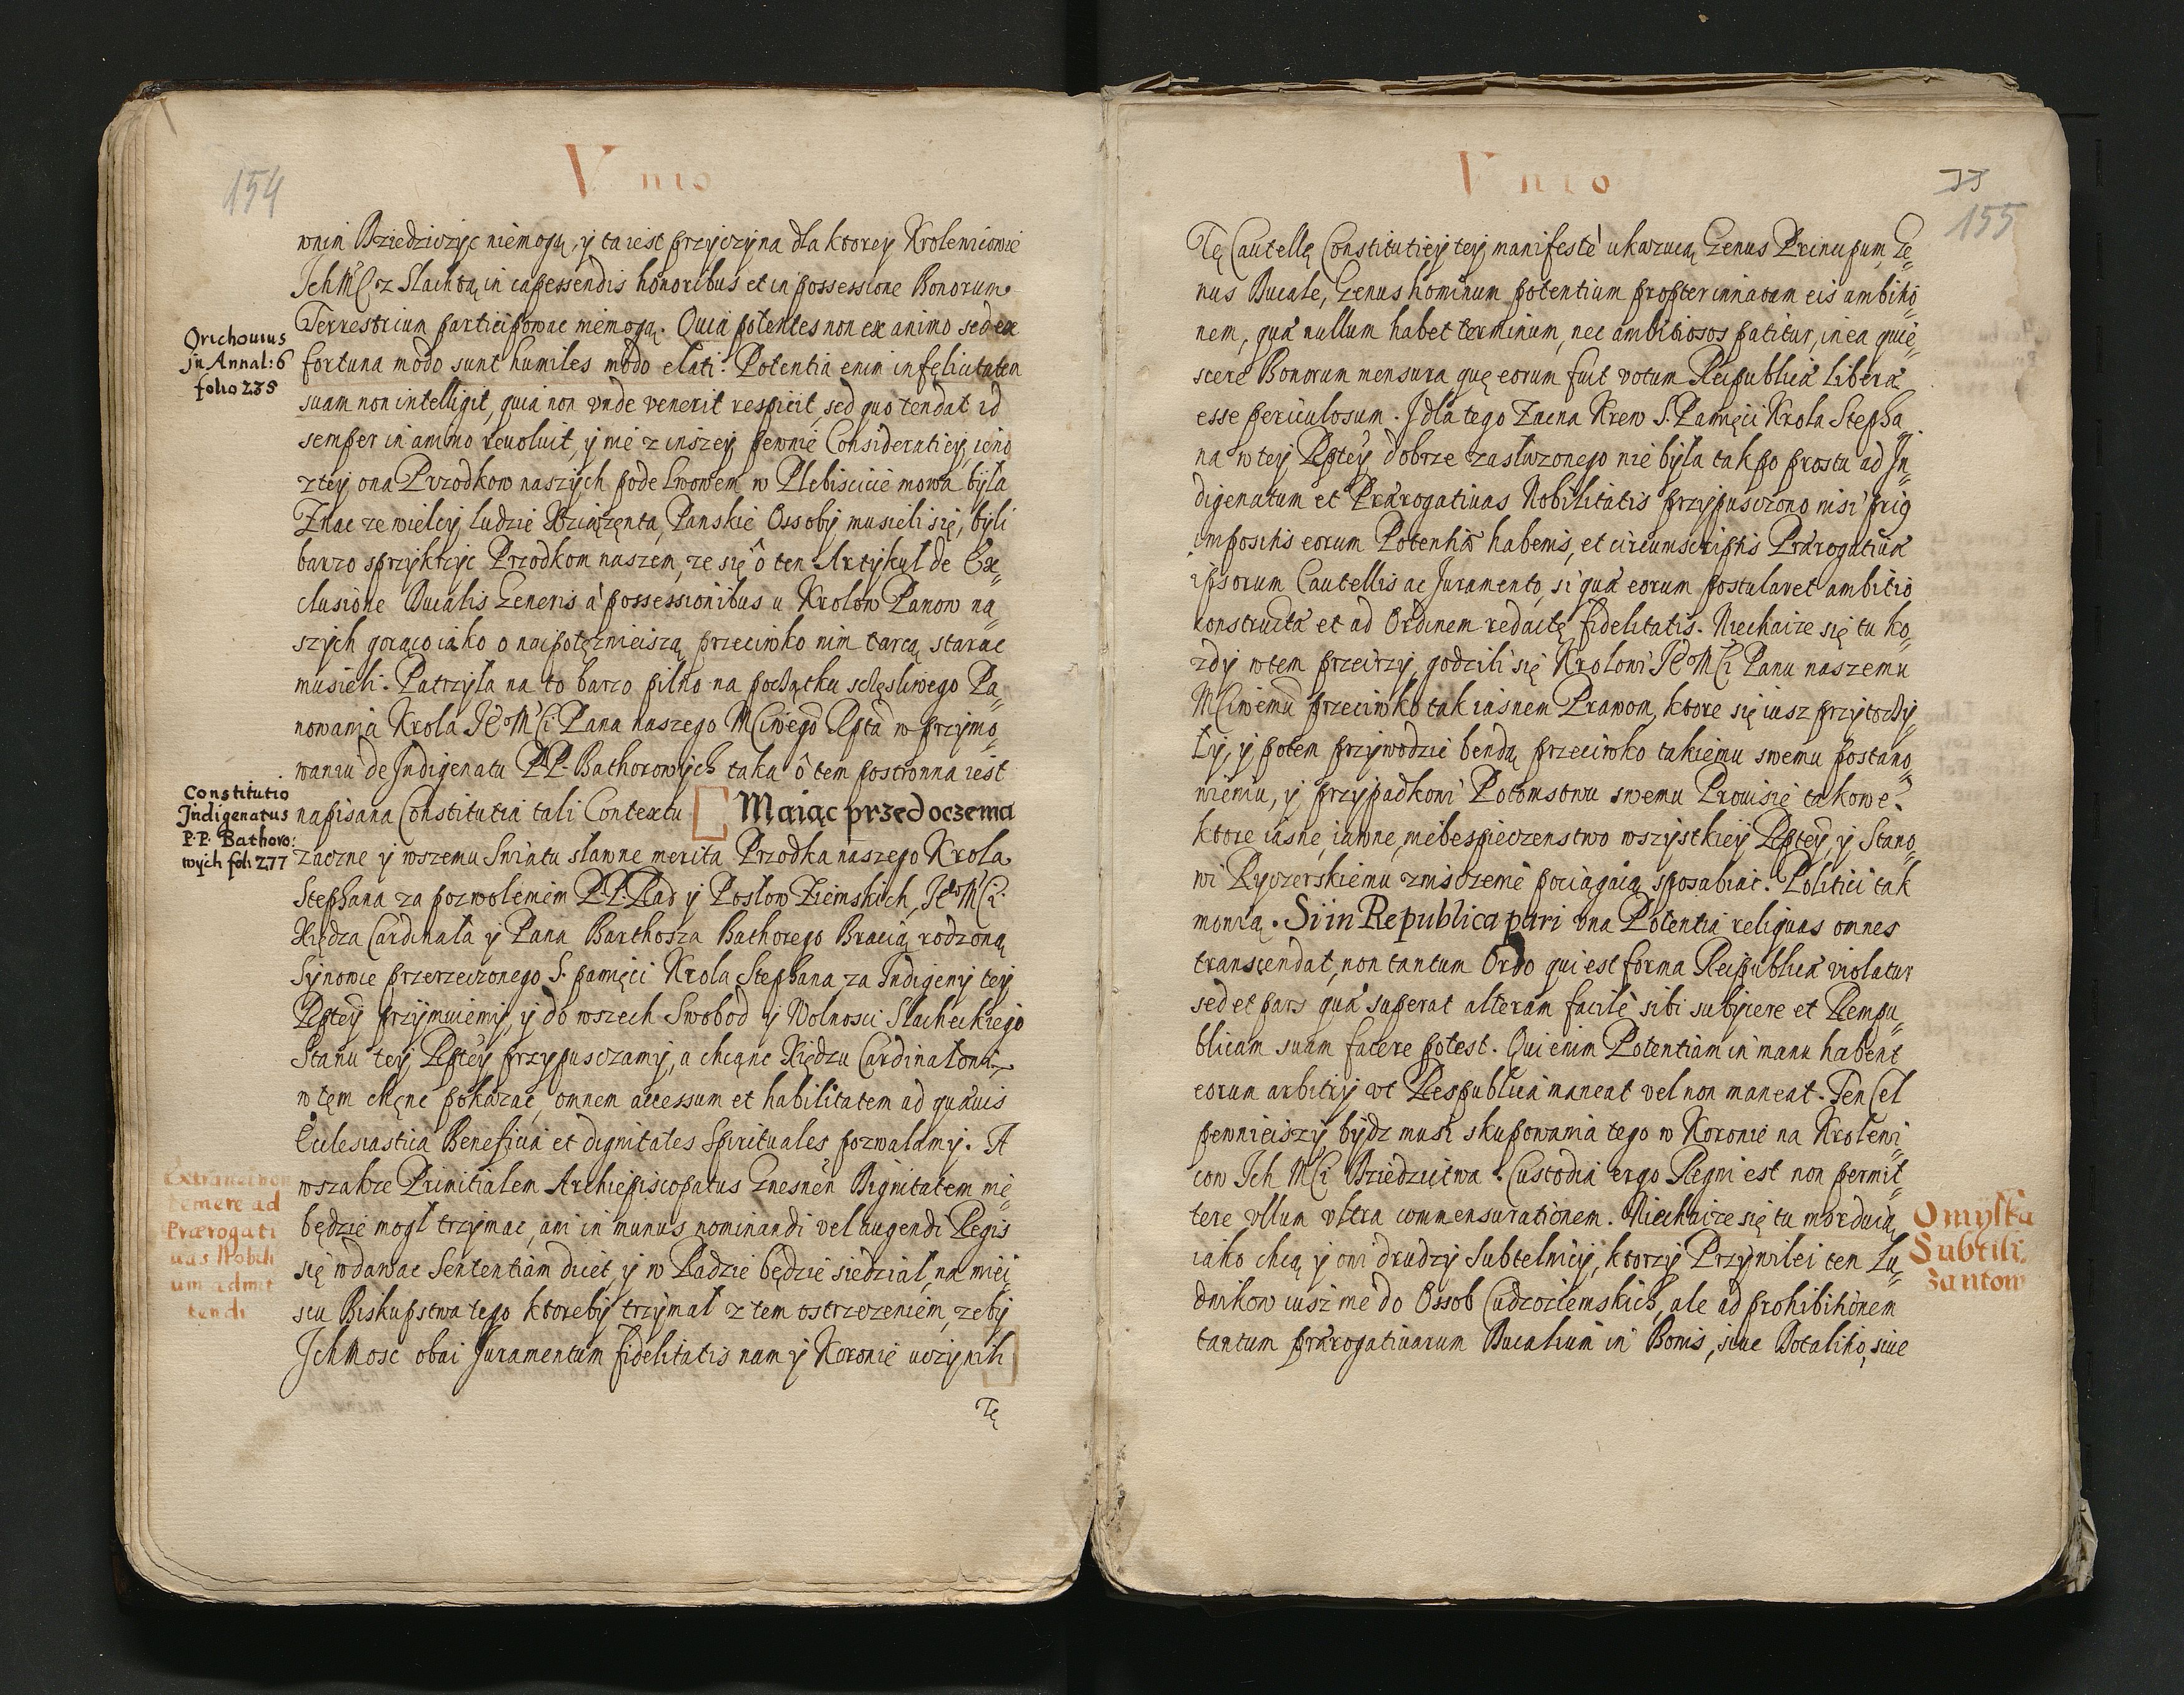 154
Vnio
wnim Dziedziczyc niemogą, y ta iest przyczyna dla ktorey Krolewicowie
Ich Mc z Slachtą in capessendis honoribus et in possessione Bonorum
Terrestrium participowac niemogą. Quia potentes non ex animo sed ex
Orichouius
in Annal: 6
folio 235
fortuna modo sunt humiles modo elati. Potentia enim infęlicitatem
suam non intelligit, quia non vnde venerit respicit, sed quo tendat id
semper in animo reuoluit, y nie z inszey pewnie Consideratiey, ieno
z tey ona Przodkow naszych pode Lwowem w Plebiscicie mowa była
Znac ze wielcy ludzie Xziązęnta, Panskie Ossoby musieli się, byli
barzo sprzykrzyc Przodkom naszem, ze się ô ten Artykuł de Ex=
clusione Ducalis Generis à possessionibus u Krolow Panow na=
szych gorąco iako o naipotęznieiszą przeciwko nim tarcą starac
musieli. Patrzyła na to barzo pilno na początku sczęsliwego Pa=
nowania Krola Je° Mci Pana naszego Mciwego Rpta w przymo=
waniu de Indigenatu PP. Bathorowych taka ô tem postronna iest
Constitutio
Indigenatus
P.P. Bathoro:
wych fol: 277
napisana Constitutia tali Contextu [ Maiąc przed oczema
zacne y wszemu Swiatu sławne merita Przodka naszego Krola
Stephana za pozwoleniem PP. Rad y Posłow Ziemskich, Je° Mci
Xiędza Cardinała y Pana Barthosza Bathorego Bracią rodzoną
Synowce przerzeczonego S. pamięci Krola Stephana za Indigeny tey
Rptey przymuiemy, y do wszech Swobod y Wolnosci Slacheckiego
Stanu tey Rptey przypusczamy, a chcąnc Xiędzu Cardinałowi
w tęm chęnc pokazac, omnem accessum et habilitatem ad quæuis
Ecclesiastica Beneficia et dignitates Spirituales pozwalamy. A
Extranei non
temere ad
Prærogati
uas Nobili
um admit
tendi
wszakze Primitialem Archiepiscopatus Gnesnen Dignitatem nie=
będzie mogł trzymac, ani in munus nominandi vel augendi Regis
się wdawac Sententiam dicet, y w Radzie będzie siedział, na miei=
scu Biskupstwa tego ktoreby trzymał z tem ostrzezeniem, zeby
Ich Mosc obai Juramentum fidelitatis nam y Koronie uczynili ]
Tę
Vnio
155
Tę Cautellę Constitutiey tey manifestè ukazuią Genus Principum, Ge=
nus Ducale, Genus hominum potentium propter innatam eis ambitio=
nem, quæ nullum habet terminum, nec ambitiosos patitur, in ea quie=
scere Bonorum mensura quę eorum fuit votum Reipublicæ Liberæ
esse periculosum. I dla tego Zacna Krew S. Pamięci Krola Stepha=
na w tey Rptey dobrze zasłuzonego nie była tak po prostu ad In=
digenatum et Prærogatiuas Nobilitatis przypusczono nisi prius
impositis eorum Potentiæ habenis, et circumscriptis Prærogatiuæ
ipsorum Cautellis ac Juramento, si quæ eorum postularet ambitio
constructa et ad Ordinem redactę fidelitatis. Niechaize się tu ko=
zdy w tem przeirzy, godzili się Krolowi Je° Mci Panu naszemu
Mciwemu przeciwko tak iasnem Prawom, ktore się iusz przytoczy=
ly, y potem przywodzic bendą przeciwko takiemu swemu postano=
wieniu, y przypadkowi Potomstwu swemu Prouisię takowe?
ktore iasne, iawne, niebespieczenstwo wszystkiey Rptey, y Stano=
wi Rycerskiemu zniszczenie pociągaią sposabiac. Politici tak
mowią. Si in Republica pari vna Potentia reliquas omnes
transcendat, non tantum Ordo qui est forma Reipublicæ violatur
sed et pars quæ superat alteram facilè sibi subyicere et Rempu=
blicam suam facere potest. Qui enim Potentiam in manu habent
eorum arbitrij vt Respublica maneat vel non maneat. Ten Cel
pewnieiszy bydz musi skupowania tego w Koronie na Krolewi=
cow Ich Mci Dziedzictwa. Custodia ergo Regni est non permit=
tere vllum vltra commensurationem. Niechaize się tu morduią
Omyłka
Subtili
zantow
iako chcą y oni drudzy Subtelnicy, ktorzy Przywilei ten Lu=
dwikow iusz nie do Ossob Cudzoziemskich, ale ad prohibitionem
tantum prærogatiuarum Ducalium in Bonis, siue Dotalitio, siue